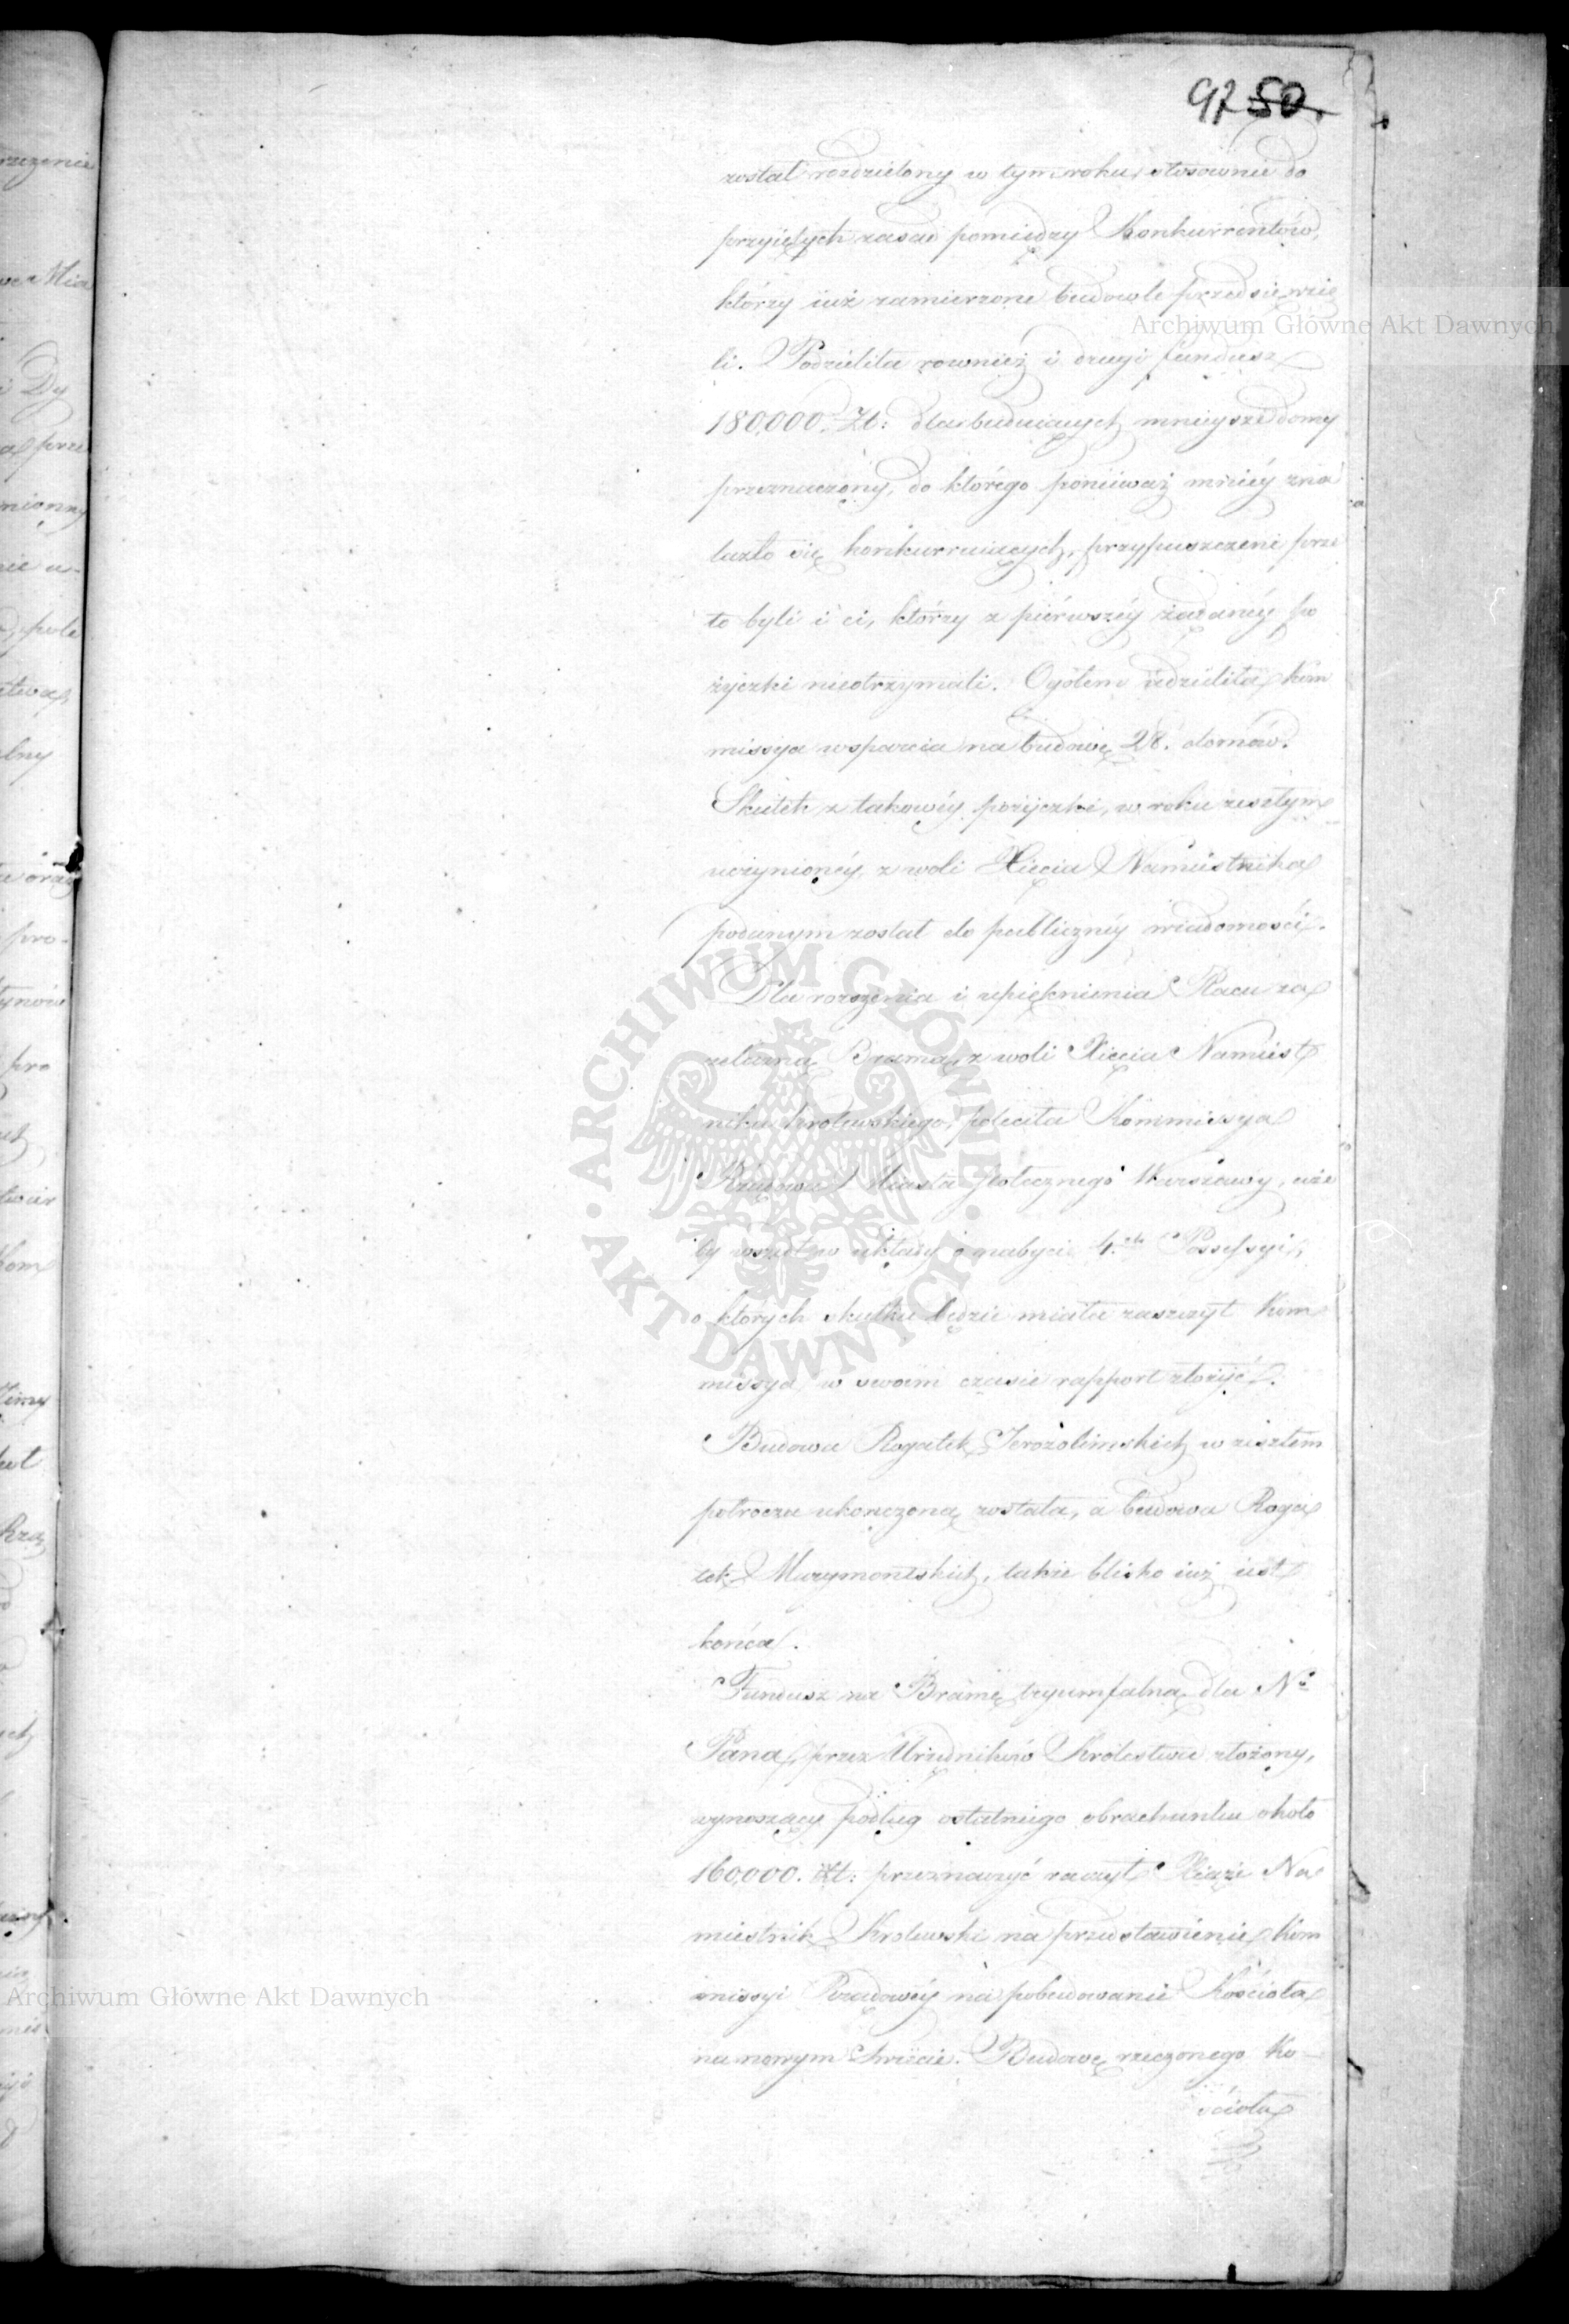 97 50.
został rozdzielony w tym roku, stosownie do
przyiętych zasad pomiędzy Konkurrentów,
którzy iuż zamierzone budowle przedsięwzię
li. Podzieliła rownież i drugi fundusz
180,000. Zł: dla buduiących mnieysze domy
przeznaczony, do którego ponieważ mniéy zna
lazło się konkurruiących, przypuszczeni prze
to byli i ci, którzy z piérwszéy żądanéy po
życzki nieotrzymali. Ogółem udzieliła Kom
missya wsparcia na budowę 28. domów.
Skutek z takowéy pożyczki, w roku zeszłym
uczynionéy, z woli Xięcia Namiestnika
podanym został do publicznéy wiadomości.
Dla rozszenia i upięknienia Placu za
żelazną Bramą, z woli Xięcia Namiest
nika Krolewskiego, poleciła Kommissya
Rządowa Miasta Stołecznego Warszawy, aże
by wszedł w układy o nabycie 4.ch Possessyi,
o ktorych skutku będzie miała zaszczyt Kom
missya w swoim czasie rapport złożyć.
Budowa Rogatek Jerozolimskich w zeszłem
połroczu ukonczoną została, a budowa Roga
tek Marymontskich, także blisko iuż iest
końca.
Fundusz na Bramę tryumfalną dla No
Pana, przez Urzędników Królestwa złożony,
wynoszący podług ostatniego obrachunku około
160,000. Zł: przeznaczyć raczył Xiąże Na
miestnik Krolewski na przedstawienie Kom
missyi Rządowéy na pobudowanie Kościoła
na nowym Swiecie. Budowę rzeczonego Ko-
ścioła
Archiwum Główne Akt Dawnych
ARCHIWUM GŁÓWNE AKT DAWNYCH
Archiwum Główne Akt Dawnych